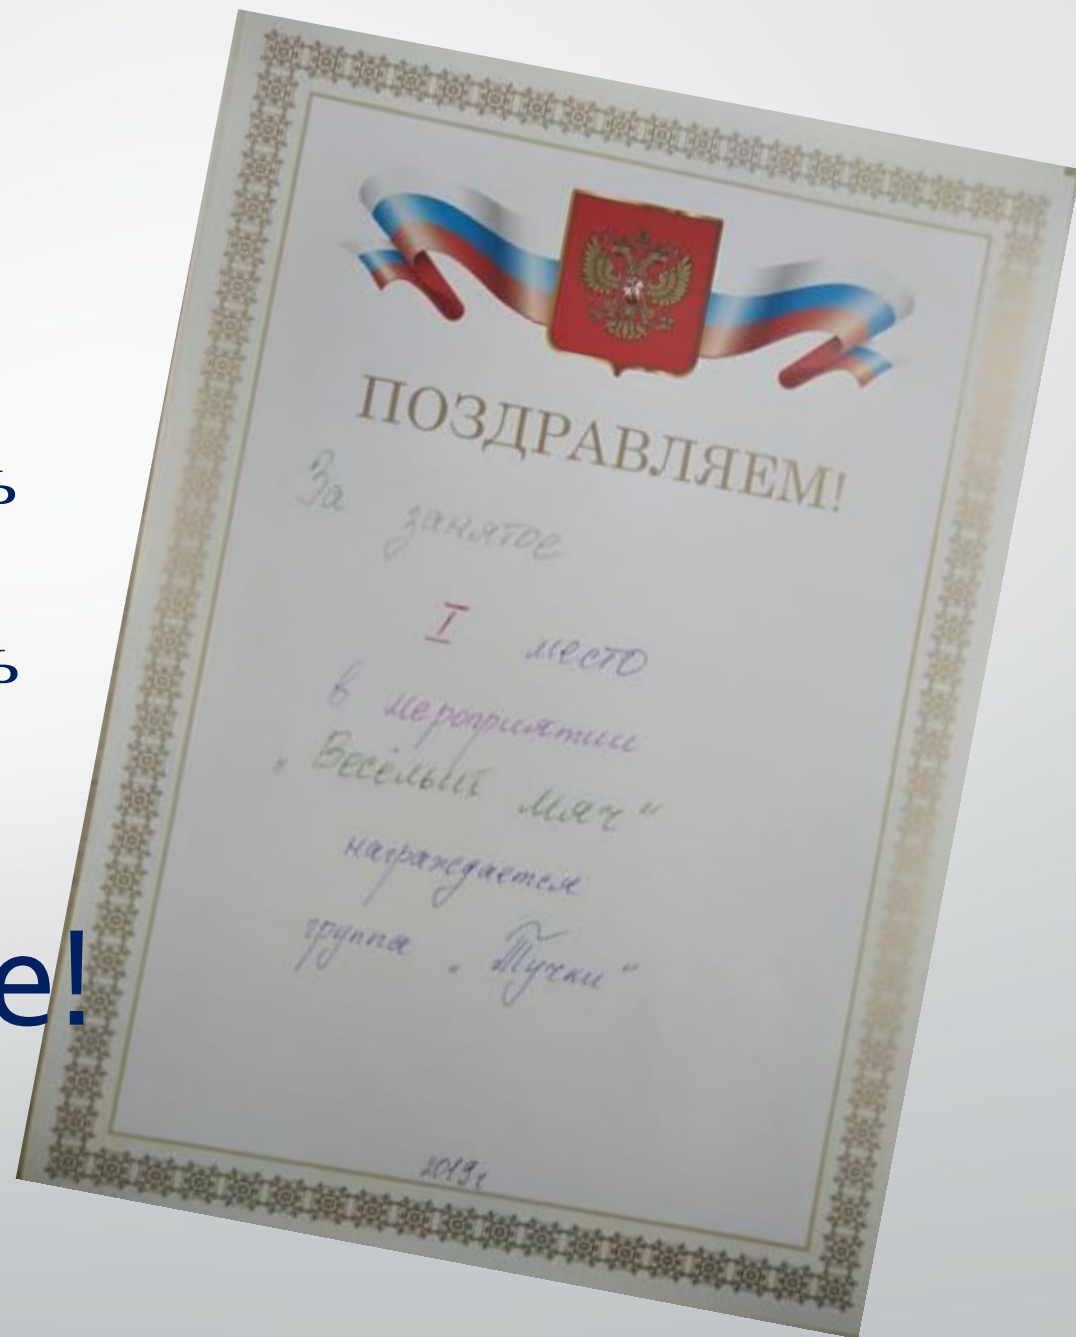 ь
ь
е!
ПОЗДРАВЛЯЕМ!
За занятое
I место
в мероприятии
„Весёлый мяч“
награждается
группа „Тучки“
2019г